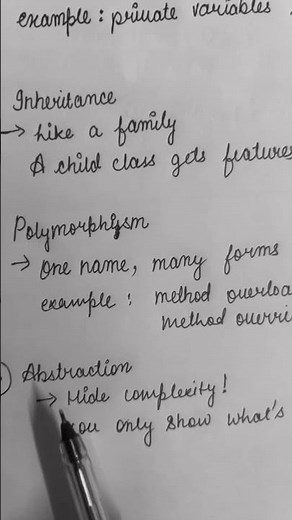 example : private variables
Inheritance
→ Like a family
A child class gets features
Polymorphism
→ One name, many forms
example : method overloa
method overri
Abstraction
→ Hide complexity!
You only show what's